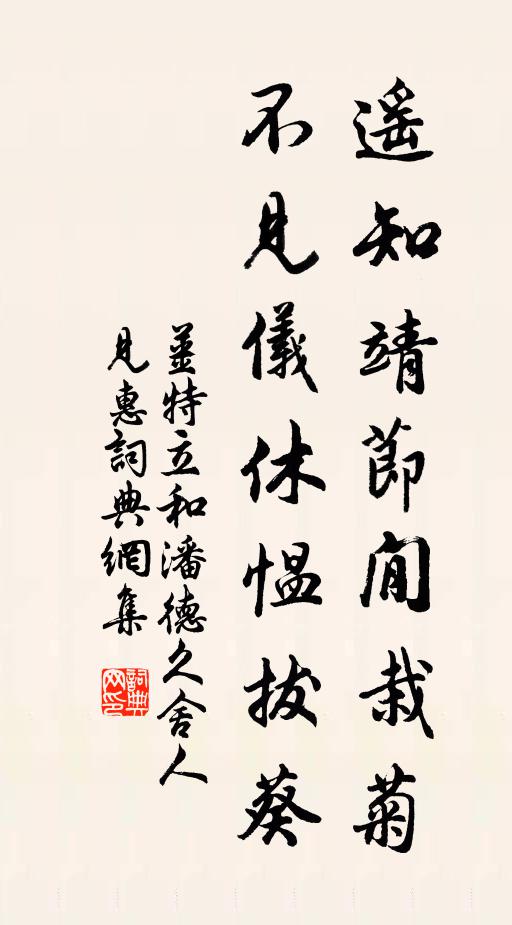 遥知靖節閒栽菊
不見儀休愠拔葵
姜特立和潘德久舍人
見惠詞典網集
詞典网印